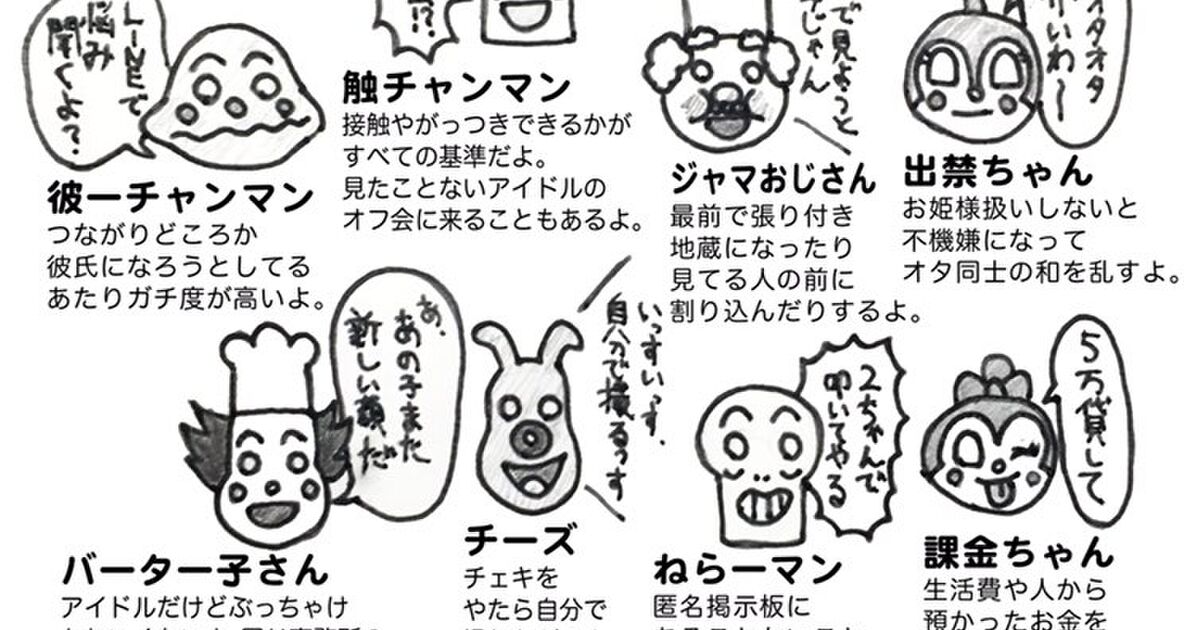 LINEで
悩み
聞くよ?
彼一チャンマン
つながりどころか
彼氏になろうとしてる
あたりガチ度が高いよ。
!?
触チャンマン
接触やがっつきできるかが
すべての基準だよ。
見たことないアイドルの
オフ会に来ることもあるよ。
で見よっと
じゃん
ジャマおじさん
最前で張り付き
地蔵になったり
見てる人の前に
割り込んだりするよ。
オタオタ
いわ〜
出禁ちゃん
お姫様扱いしないと
不機嫌になって
オタ同士の和を乱すよ。
あ、
あの子また
新しい顔だ
バーター子さん
アイドルだけどぶっちゃけ
いっすいっす、
自分で撮るっす
チーズ
チェキを
やたら自分で
2ちゃんで
叩いてやる
ねらーマン
匿名掲示板に
5万貸して
課金ちゃん
生活費や人から
預かったお金を